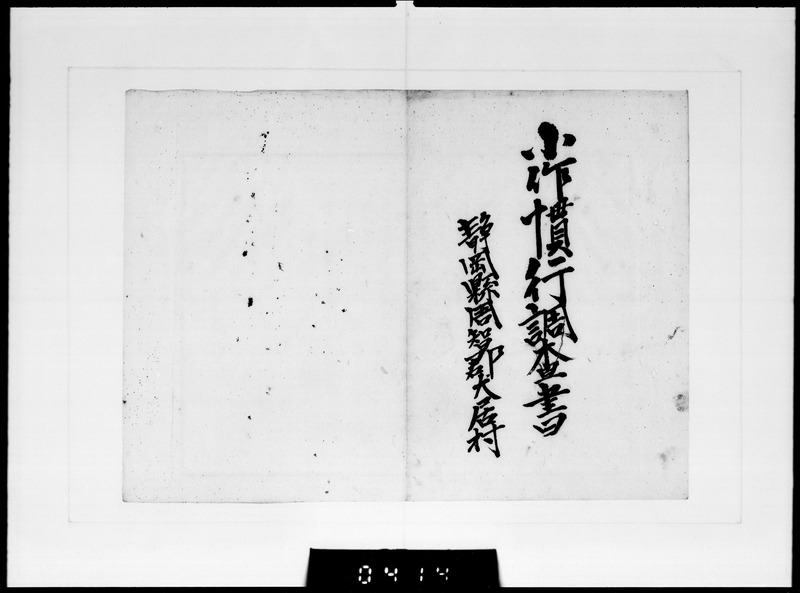 小作慣行調査書
静岡縣周智郡犬居村
0414